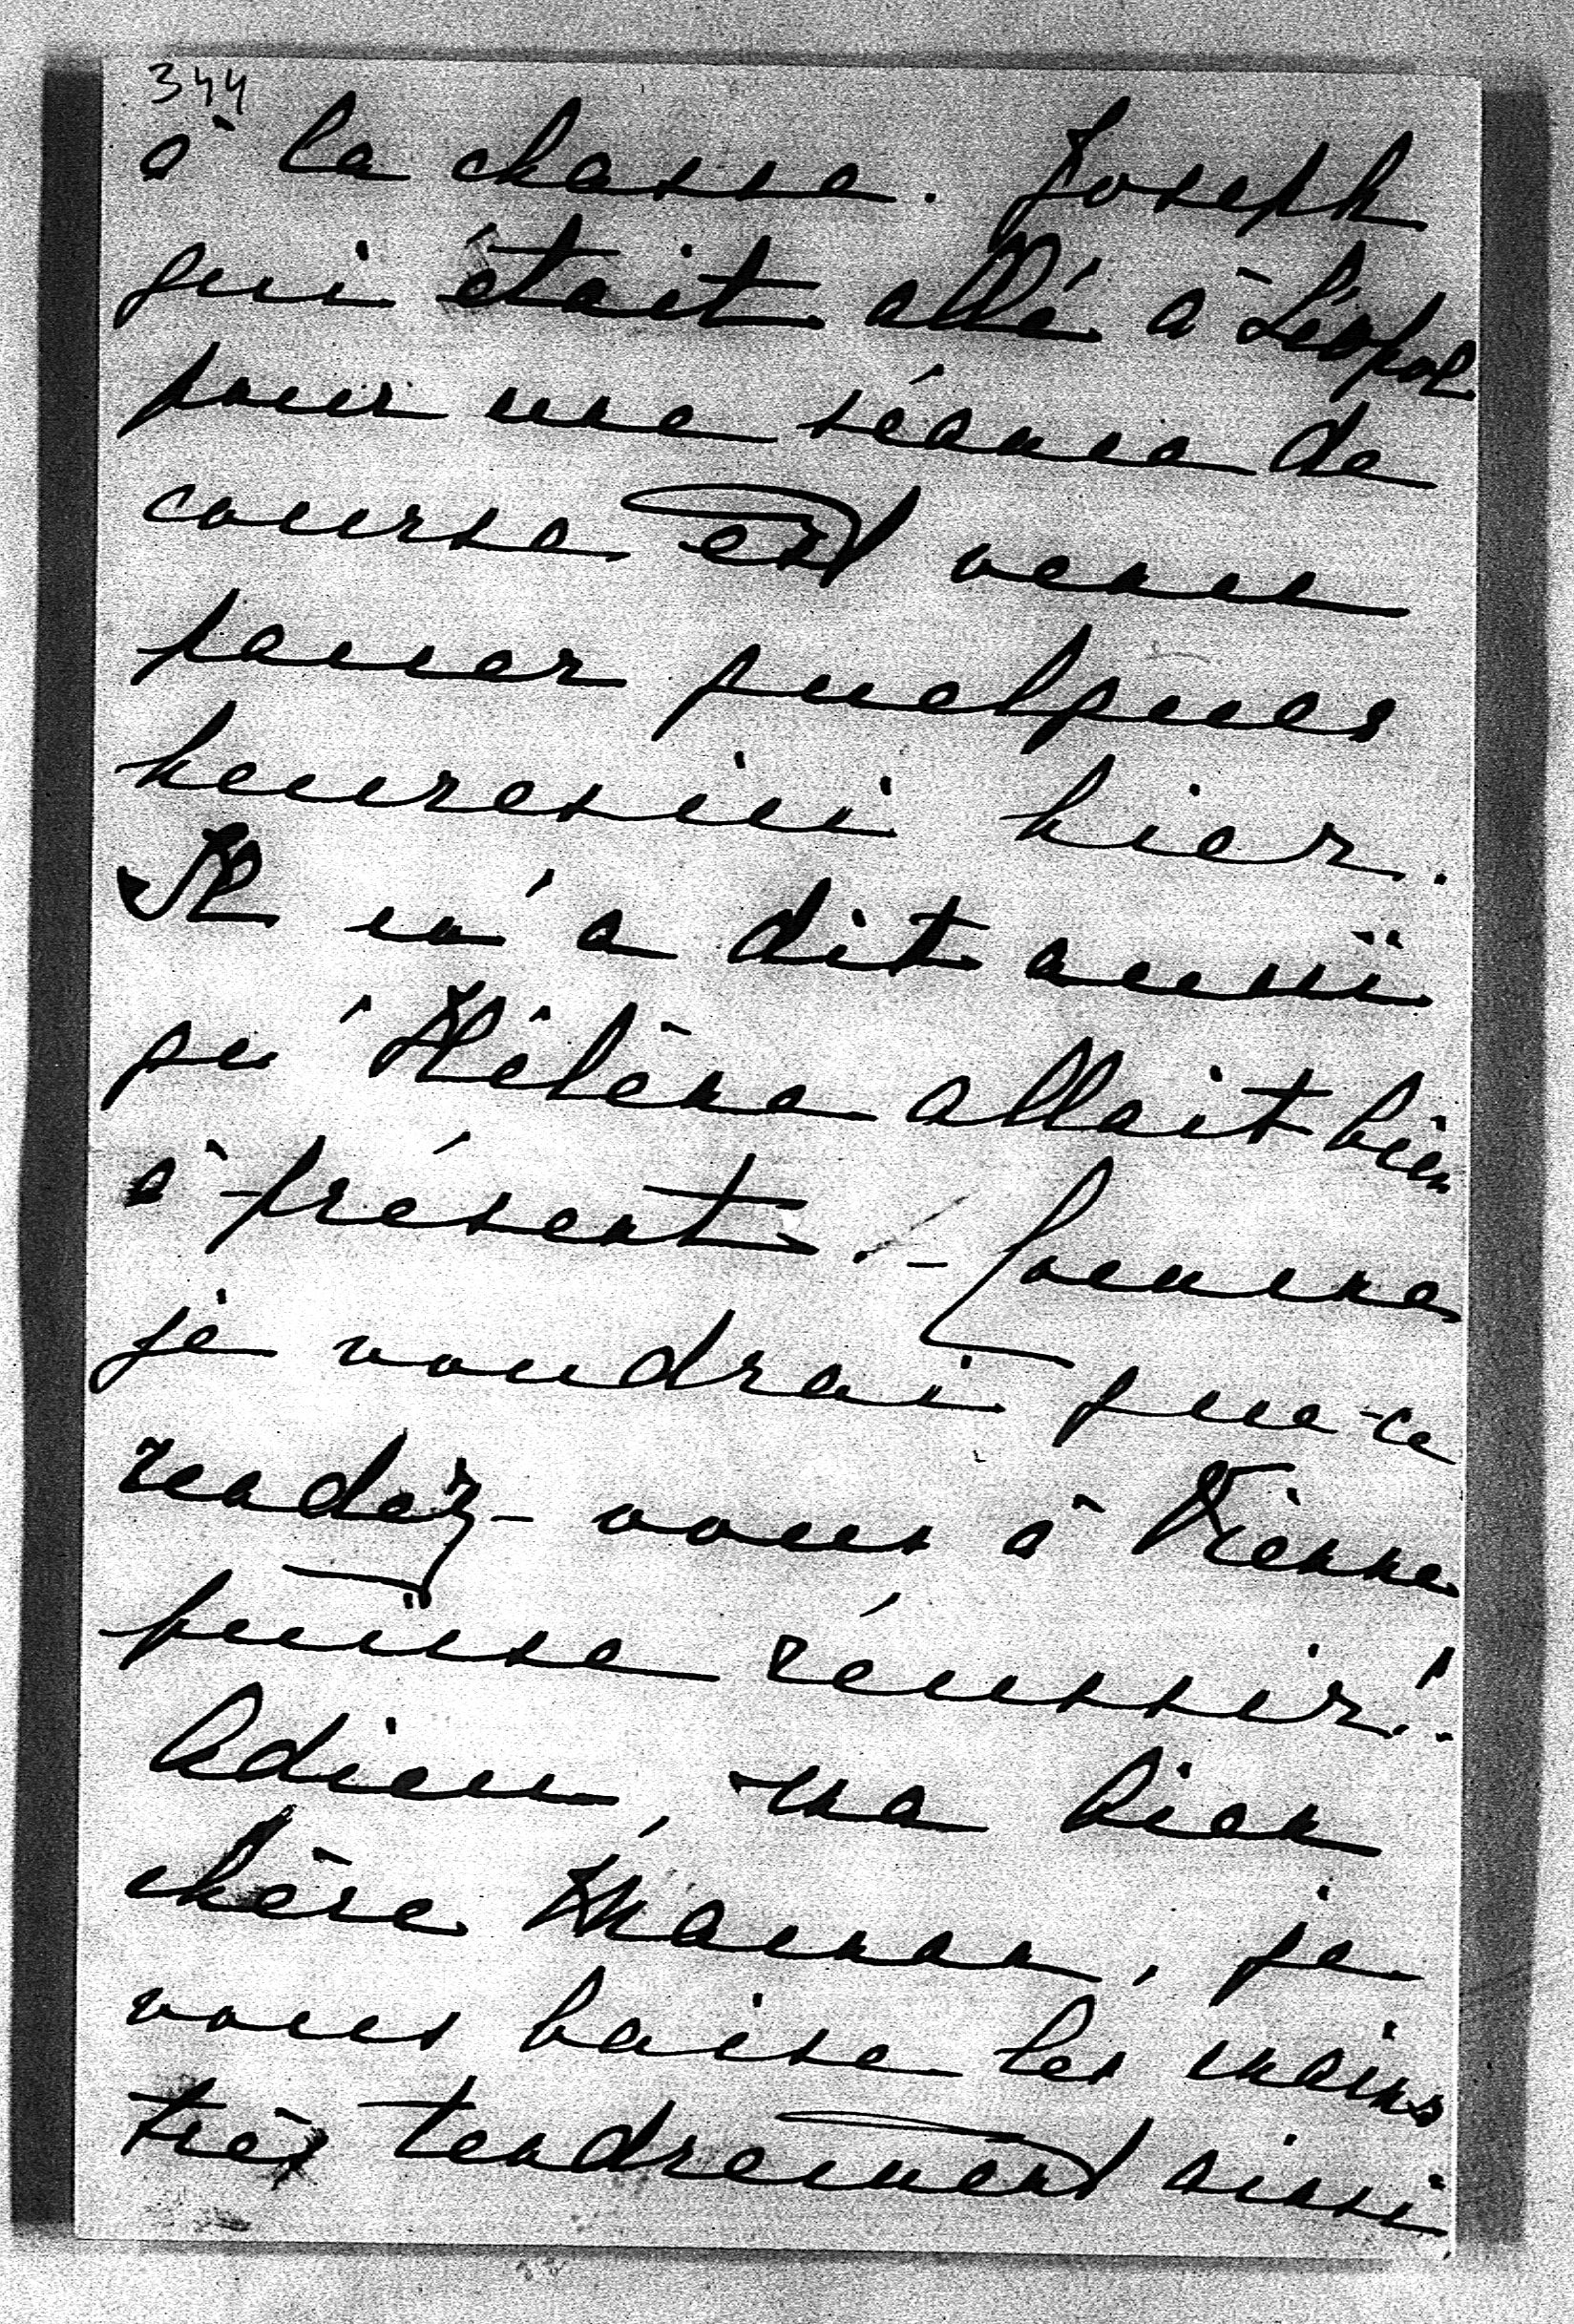 344
à la chasse. Joseph
qui était allé à Léopol
pour une séance de
course est venu
passer quelques
heures ici hier.
Il m'a dit aussi
qu'Hélène allait bien
à présent. – Comme
je voudrai que ce
rendez-vous à Vienne
puisse réussir!
Adieu, ma bien
chère Maman, je
vous baise les mains
très tendrement ainsi